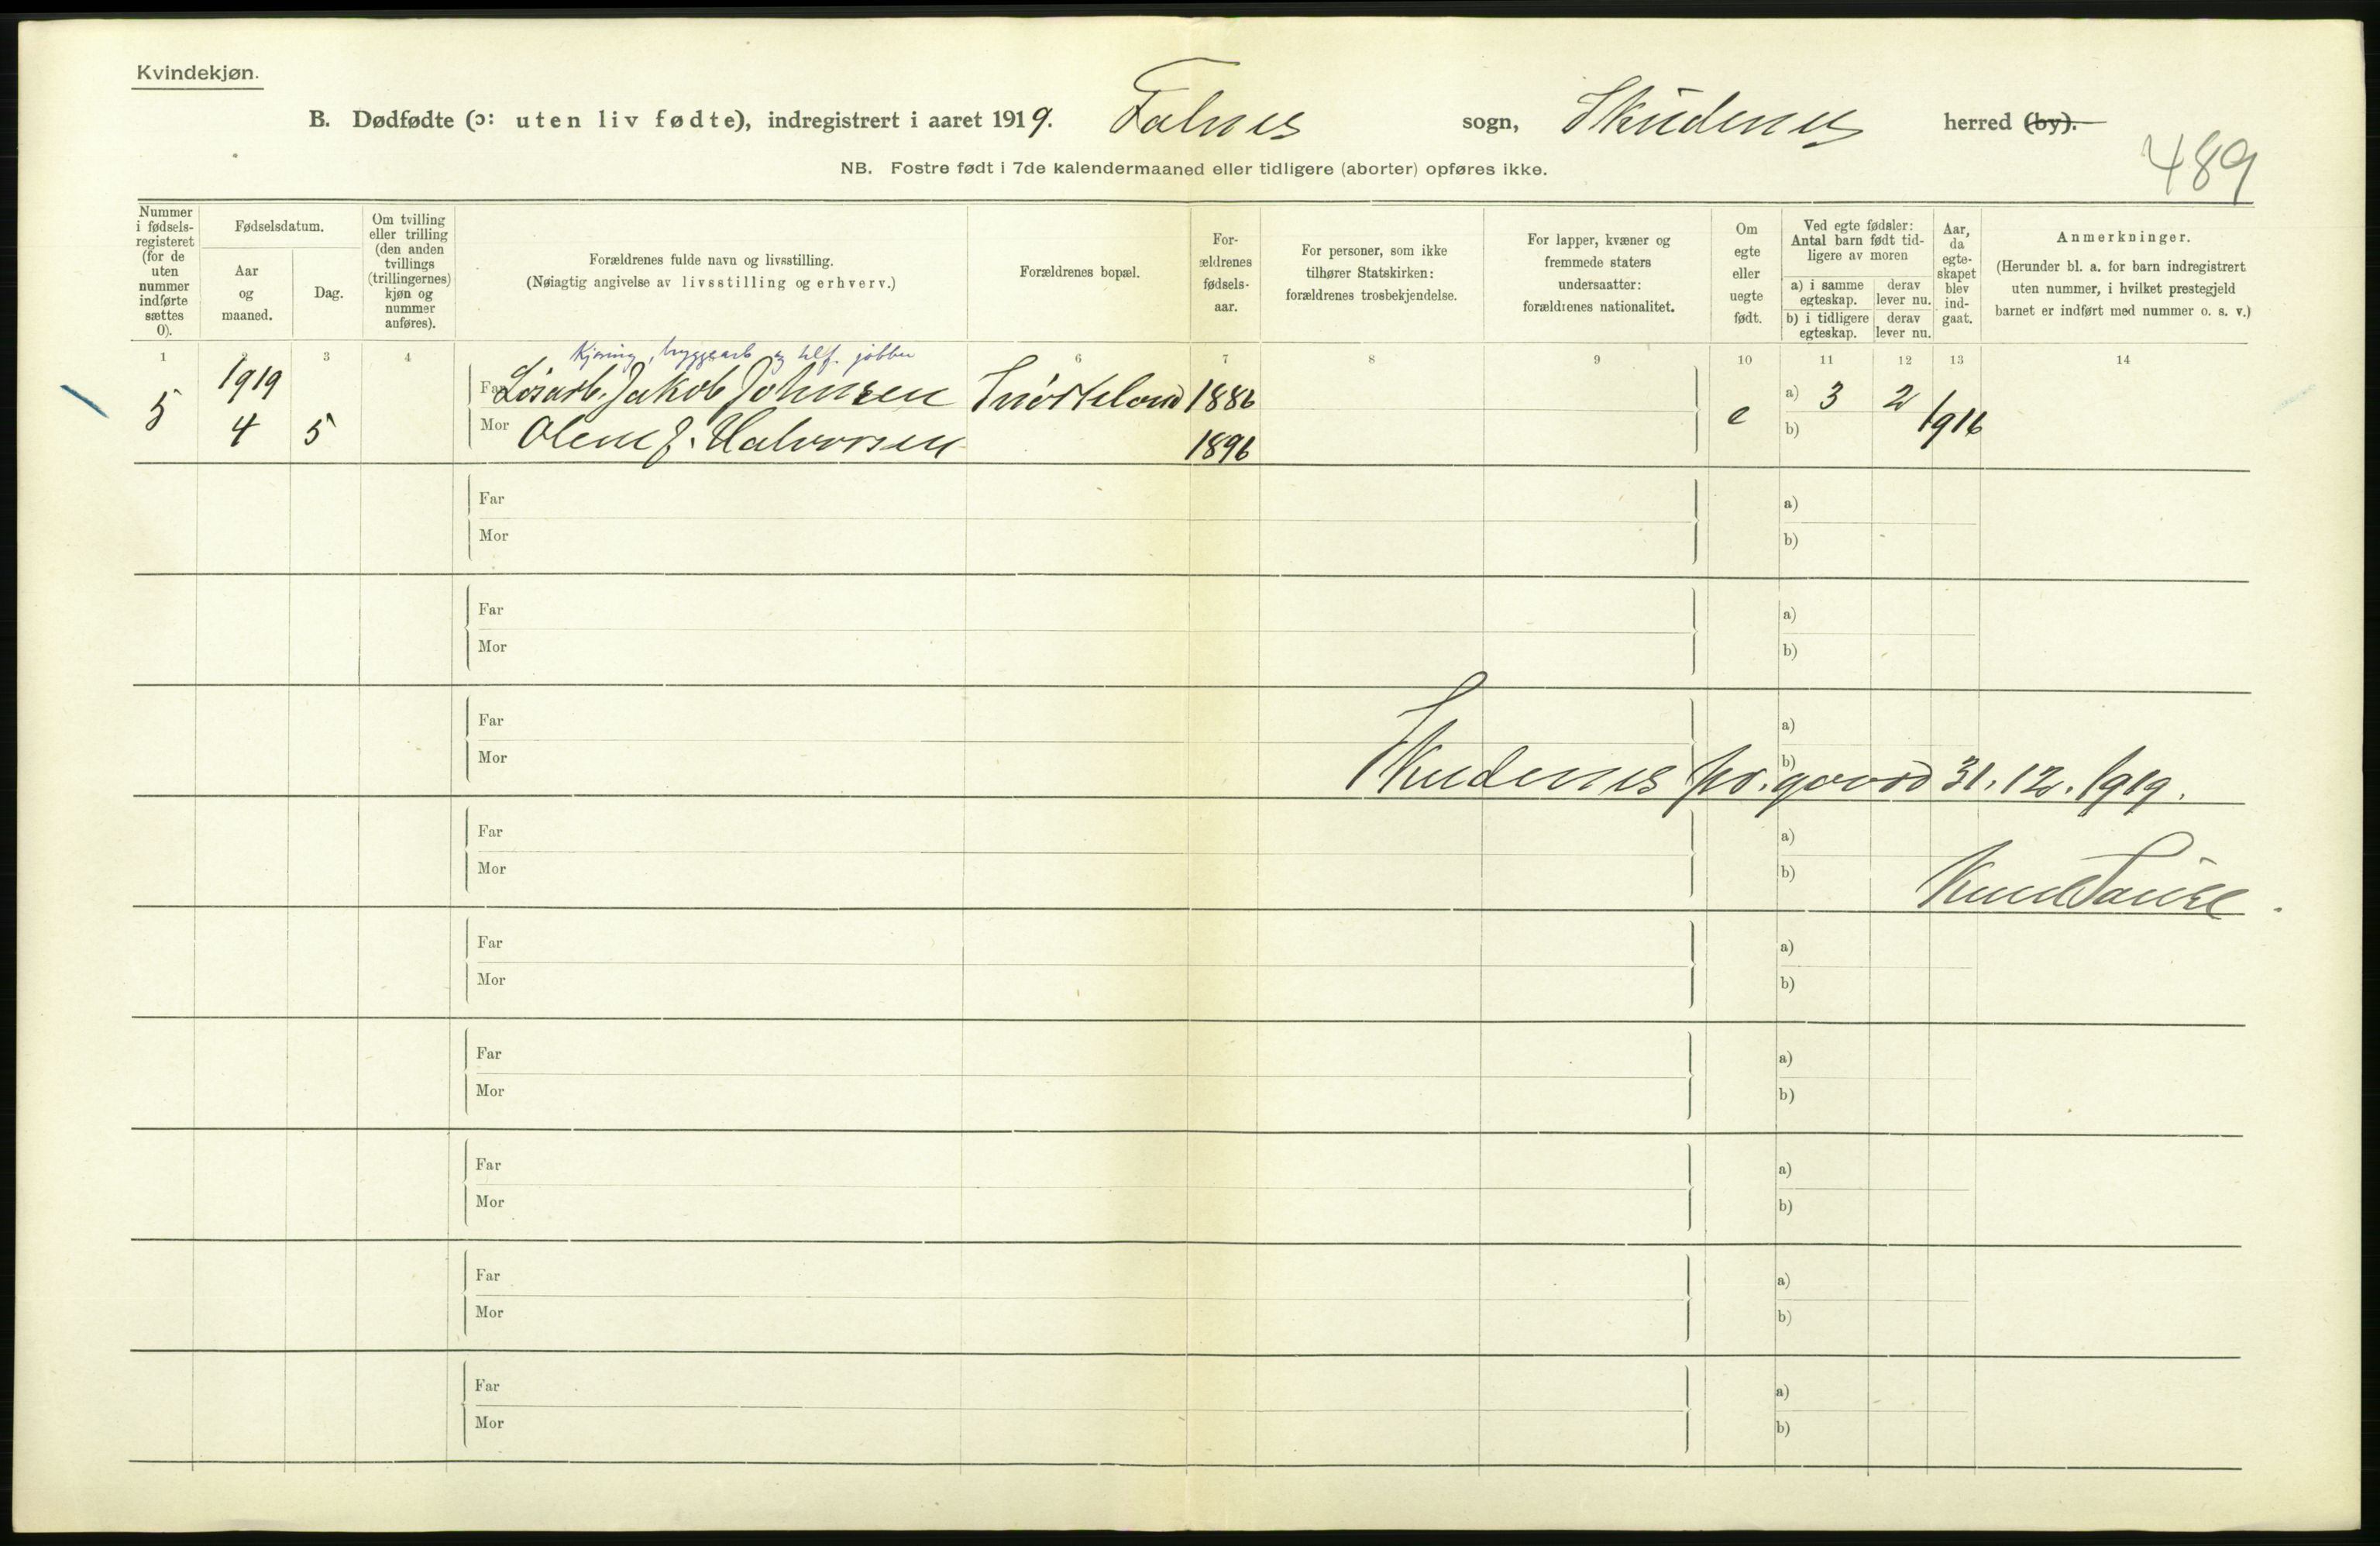 Kvindekjøn.
B. Dødfødte (ɔ: uten liv fødte), indregistrert i aaret 1919. Falnes sogn, Skudenes herred (by).
489
NB. Fostre født i 7de kalendermaaned eller tidligere (aborter) opføres ikke.
Nummer i fødselsregisteret (for de uten nummer indførte sættes 0).
Fødselsdatum.
Aar og maaned.
Dag.
Om tvilling eller trilling (den anden tvillings (trillingernes) kjøn og nummer anføres).
Forældrenes fulde navn og livsstilling.
(Nøiagtig angivelse av livsstilling og erhverv.)
Forældrenes bopæl.
Forældrenes fødselsaar.
For personer, som ikke tilhører Statskirken: forældrenes trosbekjendelse.
For lapper, kvæner og fremmede staters undersaatter: forældrenes nationalitet.
Om egte eller uegte født.
Ved egte fødsler: Antal barn født tidligere av moren
a) i samme egteskap. derav lever nu.
b) i tidligere egteskap. derav lever nu.
Aar, da egteskapet blev indgaat.
Anmerkninger.
(Herunder bl. a. for barn indregistrert uten nummer, i hvilket prestegjeld barnet er indført med nummer o. s. v.)
1 2 3 4 6 7 8 9 10 11 12 13 14
Kjøring, bryggearb og tilf. jobber
5 1919 Far Løsarb. Jakob Johnsen 1886 e a) 3 2 1916
4 5 Mor Olene J. Halvorsen 1896 b)
Far a)
Mor b)
Far a)
Mor b)
Far a)
Mor b)
Skudenes pr.gaard 31.12.1919.
Far a)
Mor b)
Knud
Far a)
Mor b)
Far a)
Mor b)
Far a)
Mor b)
Far a)
Mor b)
Far a)
Mor b)